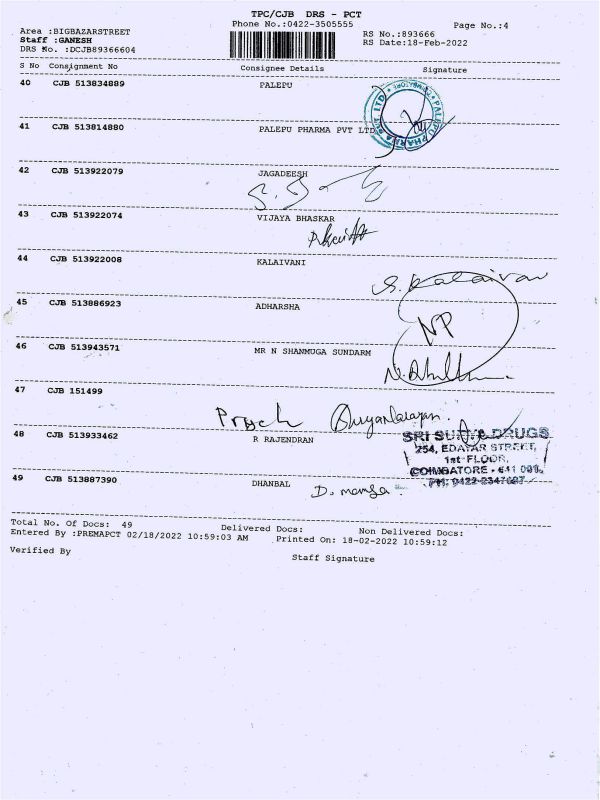 TPC/CJB DRS - PCT
Phone No.:0422-3505555
Page No.:4
Area :BIGBAZARSTREET
RS No.:893666
Staff :GANESH
RS Date:18-Feb-2022
DRS No. :DCJB89366604
S No Consignment No Consignee Details Signature
40 CJB 513834889 PALEPU
PALEPU PHARMA PVT LTD
41 CJB 513814880 PALEPU PHARMA PVT LTD
42 CJB 513922079 JAGADEESH
43 CJB 513922074 VIJAYA BHASKAR
44 CJB 513922008 KALAIVANI
S. Kalaivani
45 CJB 513886923 ADHARSHA
NP
46 CJB 513943571 MR N SHANMUGA SUNDARM
47 CJB 151499
48 CJB 513933462 R RAJENDRAN
SRI SURYA DRUGS
254, EDAYAR STREET,
1st FLOOR,
COIMBATORE - 641 001.
49 CJB 513887390 DHANBAL
D. mansa
Total No. Of Docs: 49 Delivered Docs: Non Delivered Docs:
Entered By :PREMAPCT 02/18/2022 10:59:03 AM Printed On: 18-02-2022 10:59:12
Verified By Staff Signature